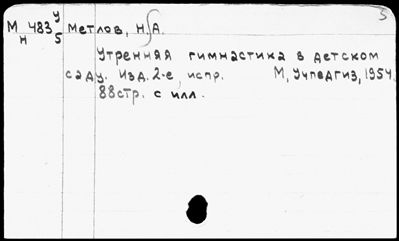 У 5
М 483 Метлов, Н. А.
н 5
Утренняя гимнастика в детском
саду. Изд. 2-е, испр. М, Учпедгиз, 1954.
88стр. с илл.